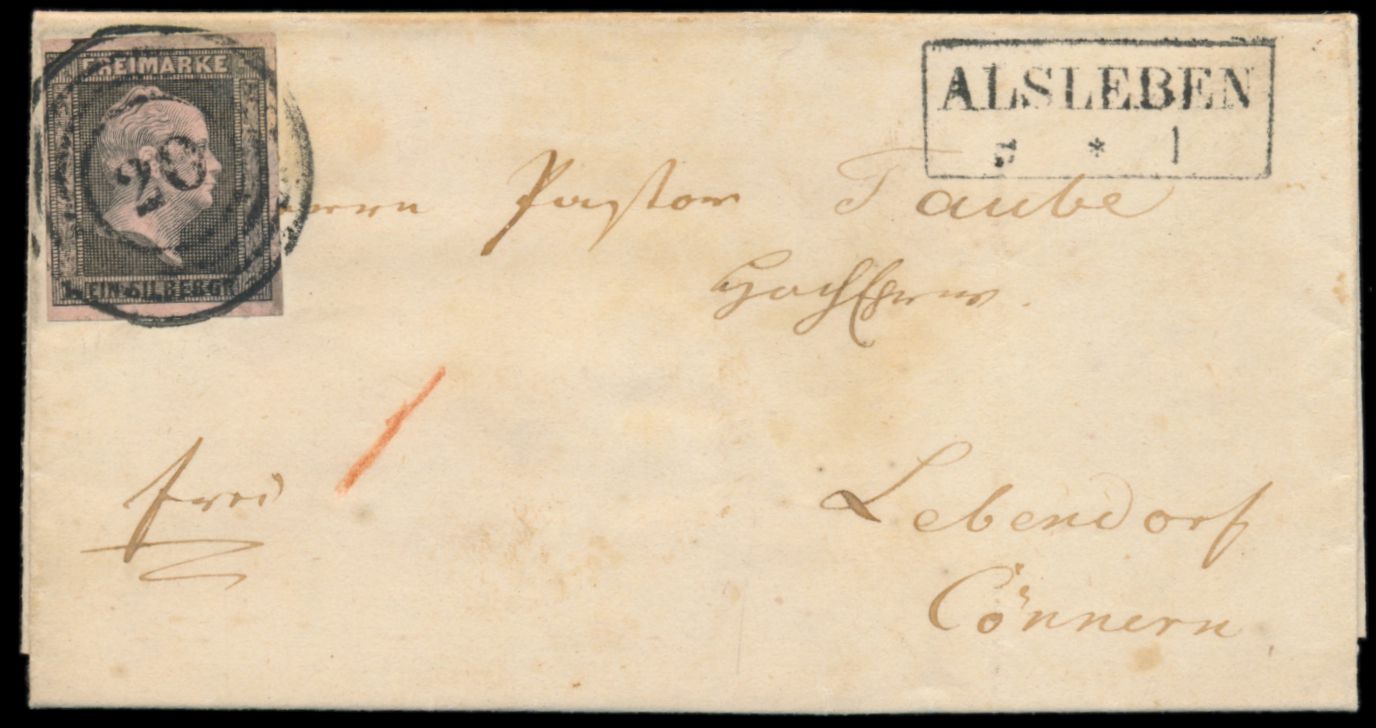 FREIMARKE
20
1 EIN SILBERGR
ALSLEBEN
5 * 1
Herrn Pastor Taube
Hochehrw.
frei 1
Lebendorf
Cönnern